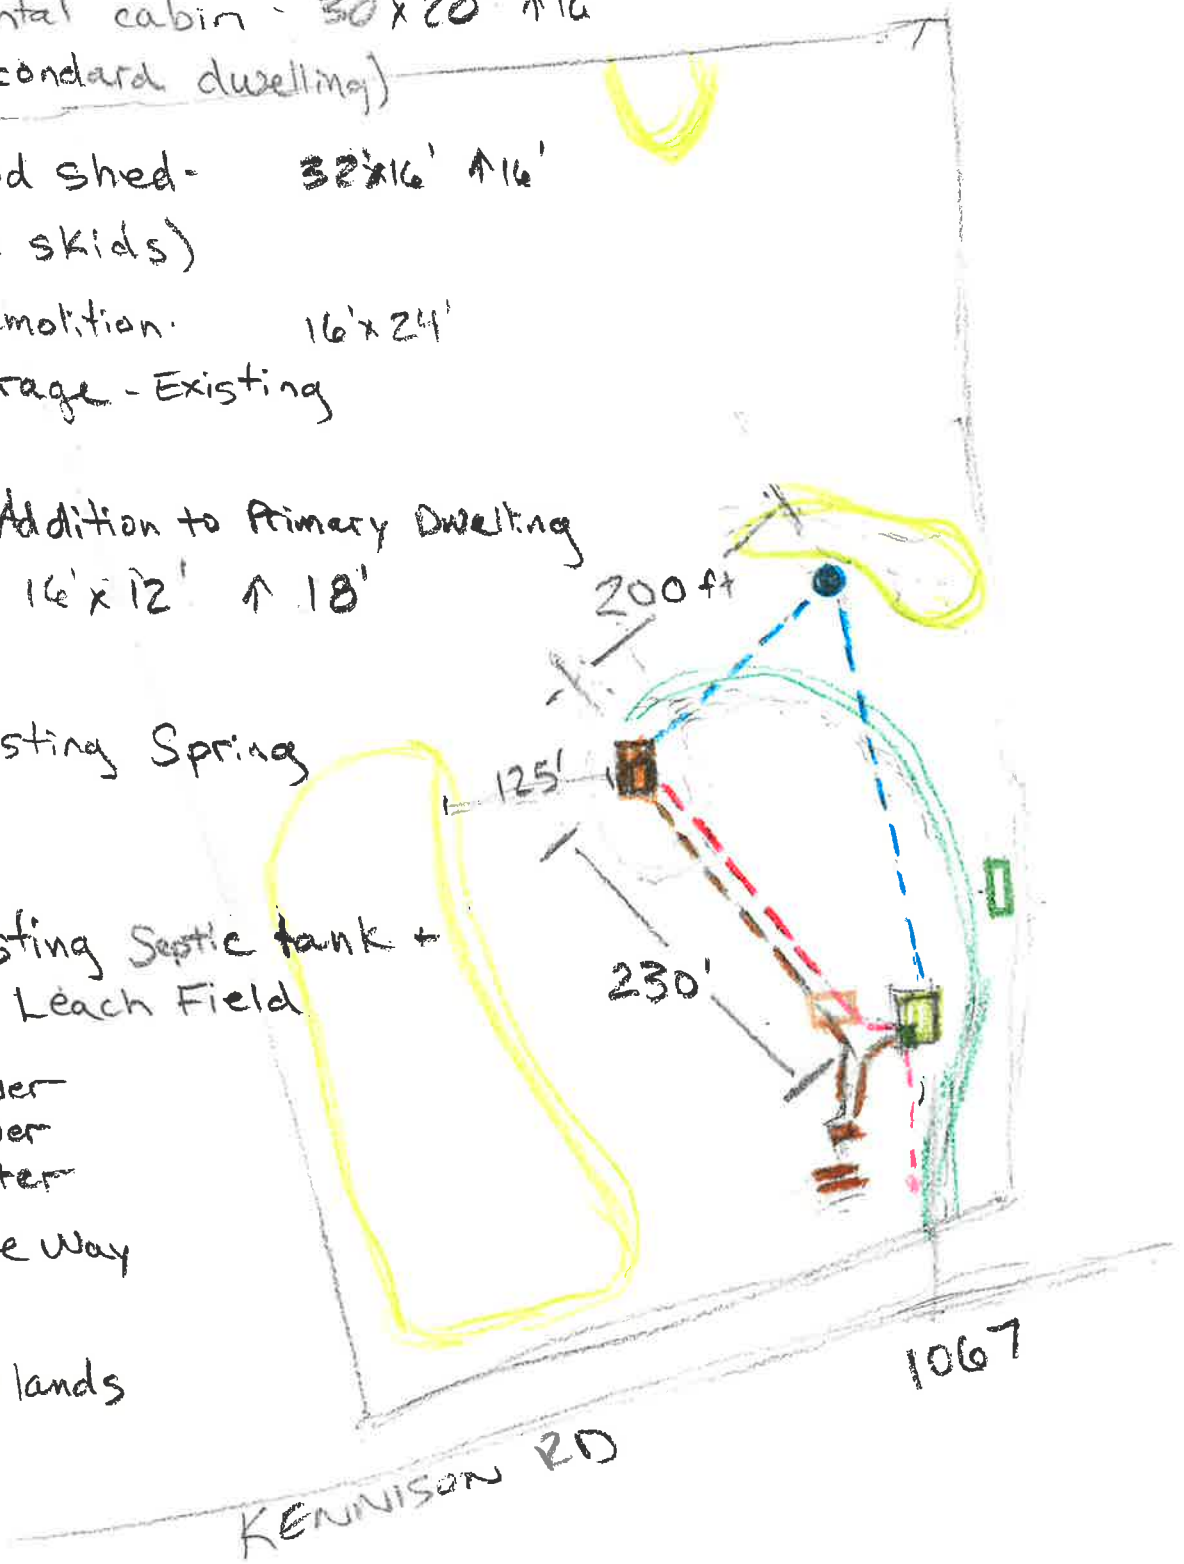 ntal cabin - 30 x 20 ↑16
condard dwelling)
d shed- 32'x16' ↑16'
skids)
molition. 16'x24'
rage - Existing
Addition to Primary Dwelling
16'x12' ↑ 18'
200 ft
sting Spring
125'
sting Septic tank +
Leach Field
230'
er
er
ter
e Way
lands
1067
KENNISON RD